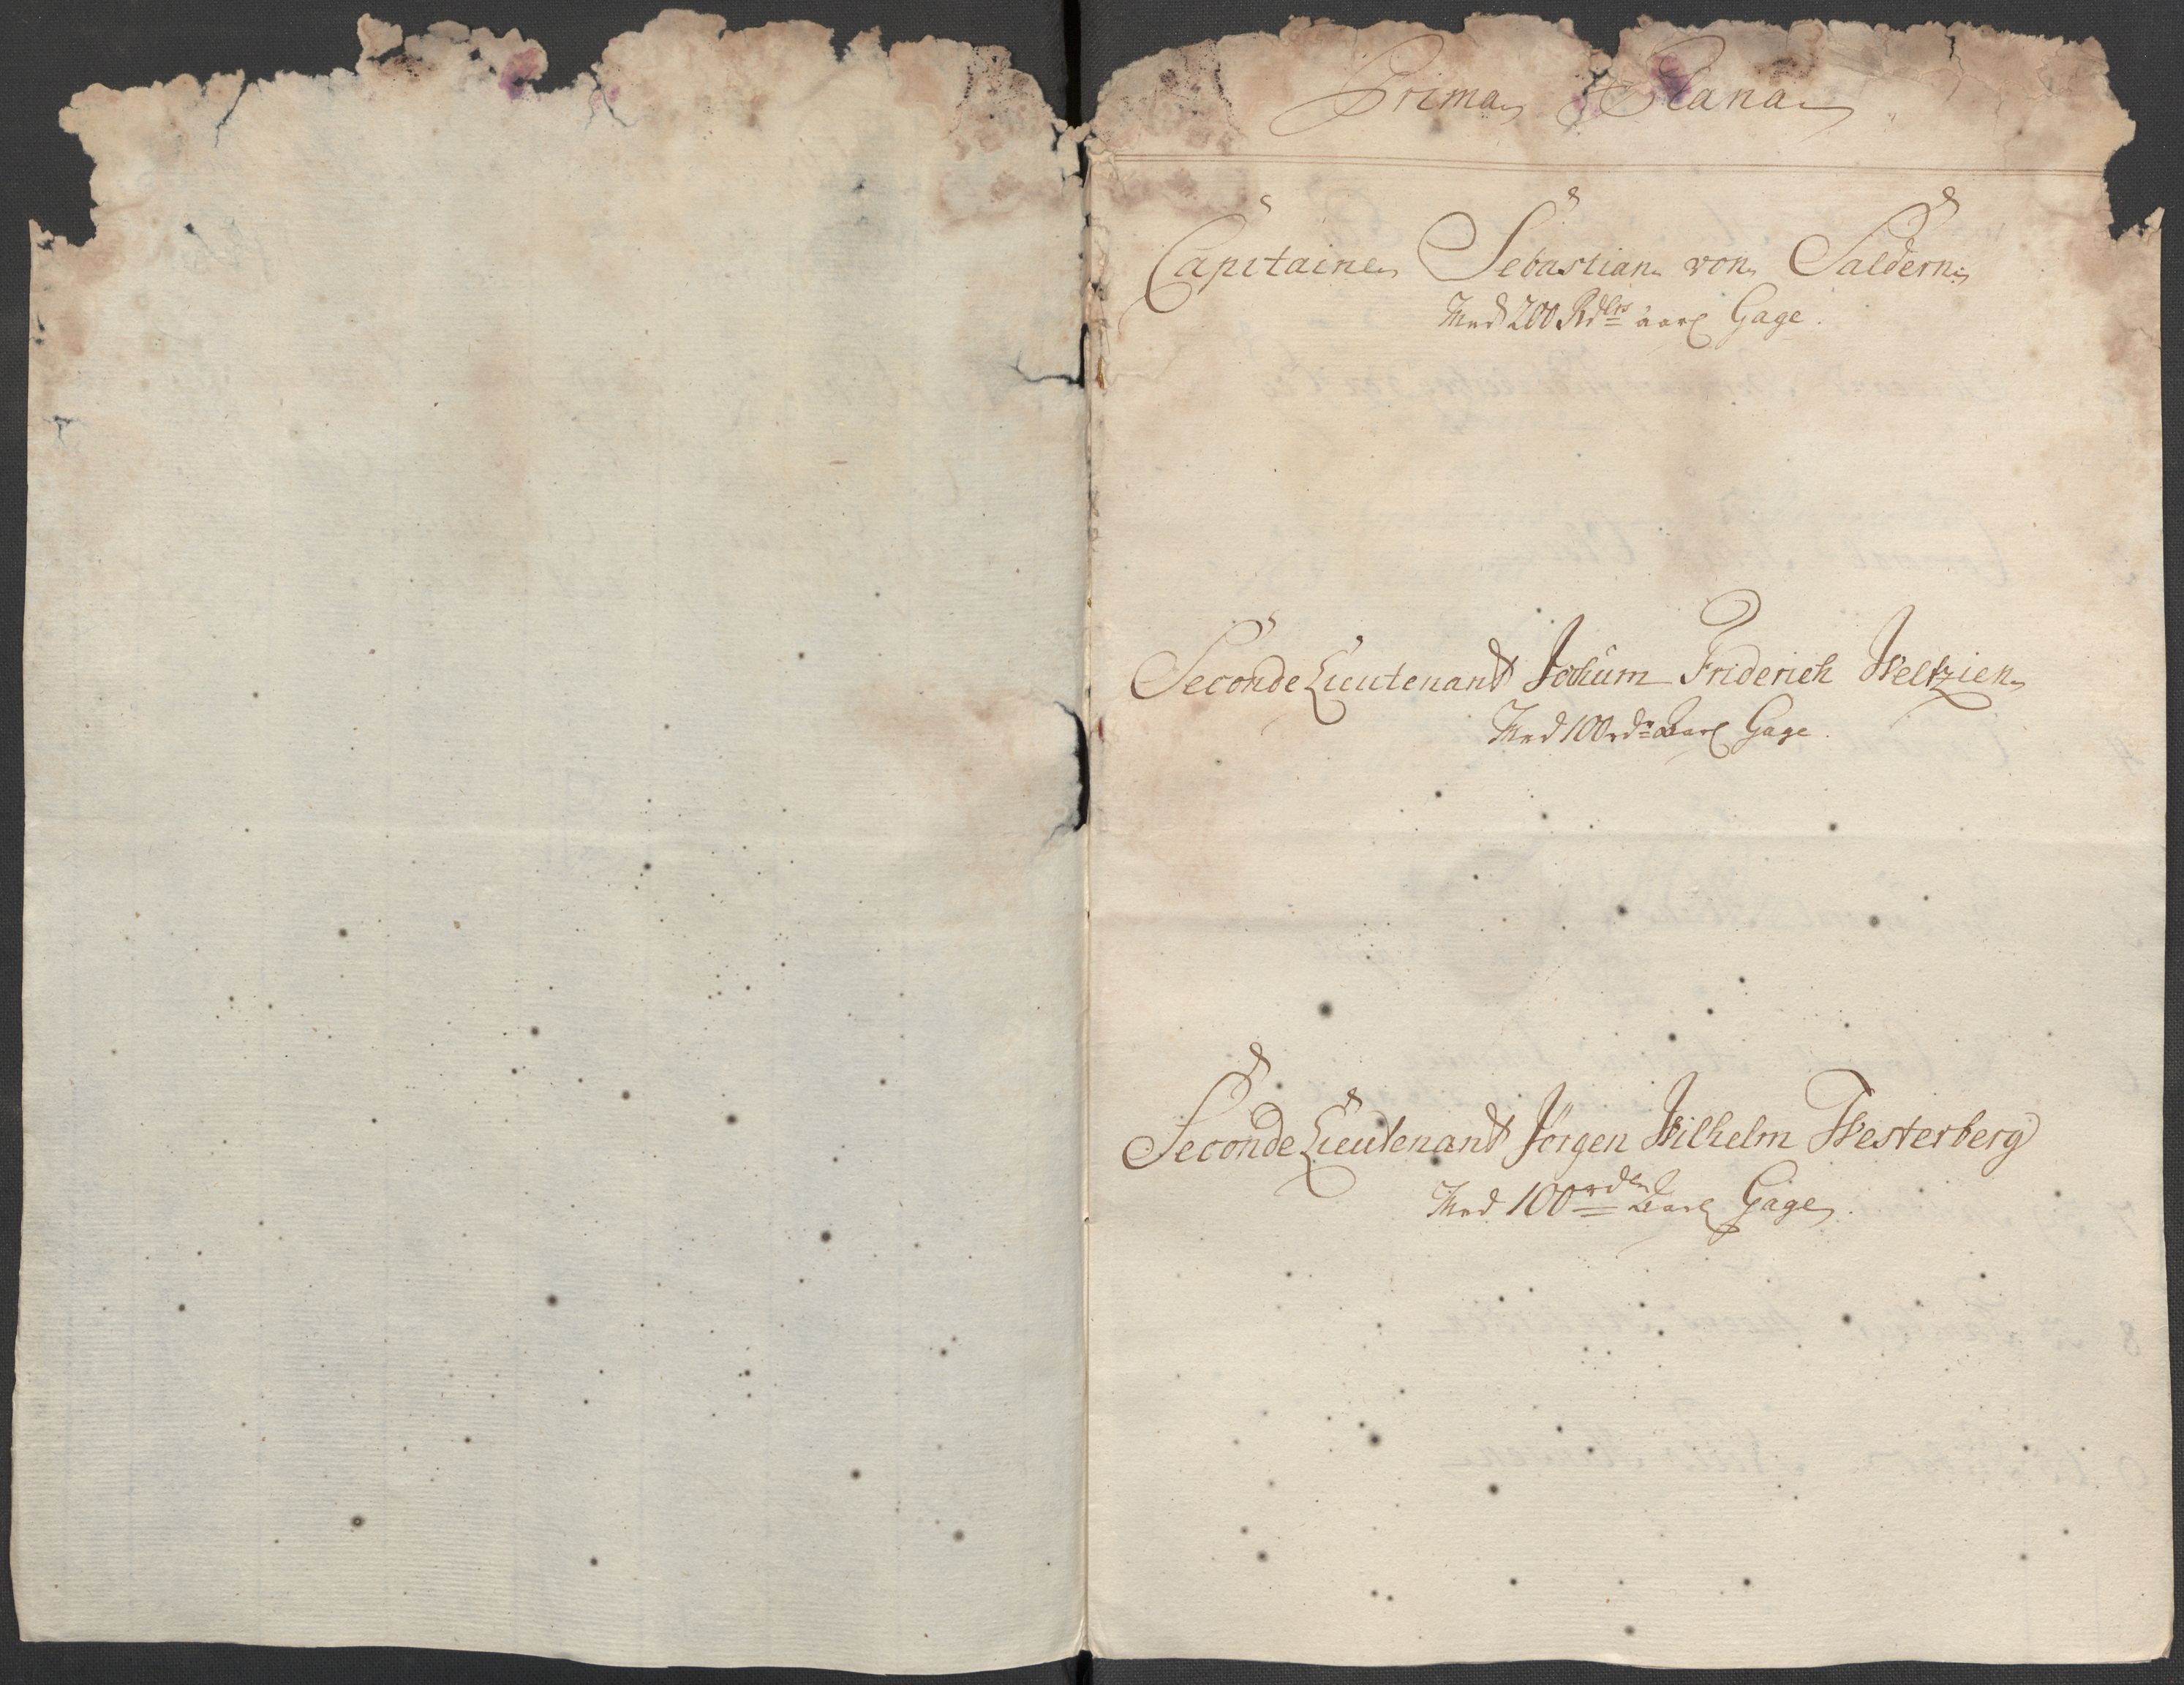 Prima Plana
Capitaine Sebastian von Saldern
Med 200 Rdlrs aarl Gage.
Seconde Lieutenant Jochum Friderich Weltzien
Med 100 rdr aarl Gage.
Seconde Lieutenant Jörgen Wilhelm Westerberg
Med 100 rdlr aarl Gage.